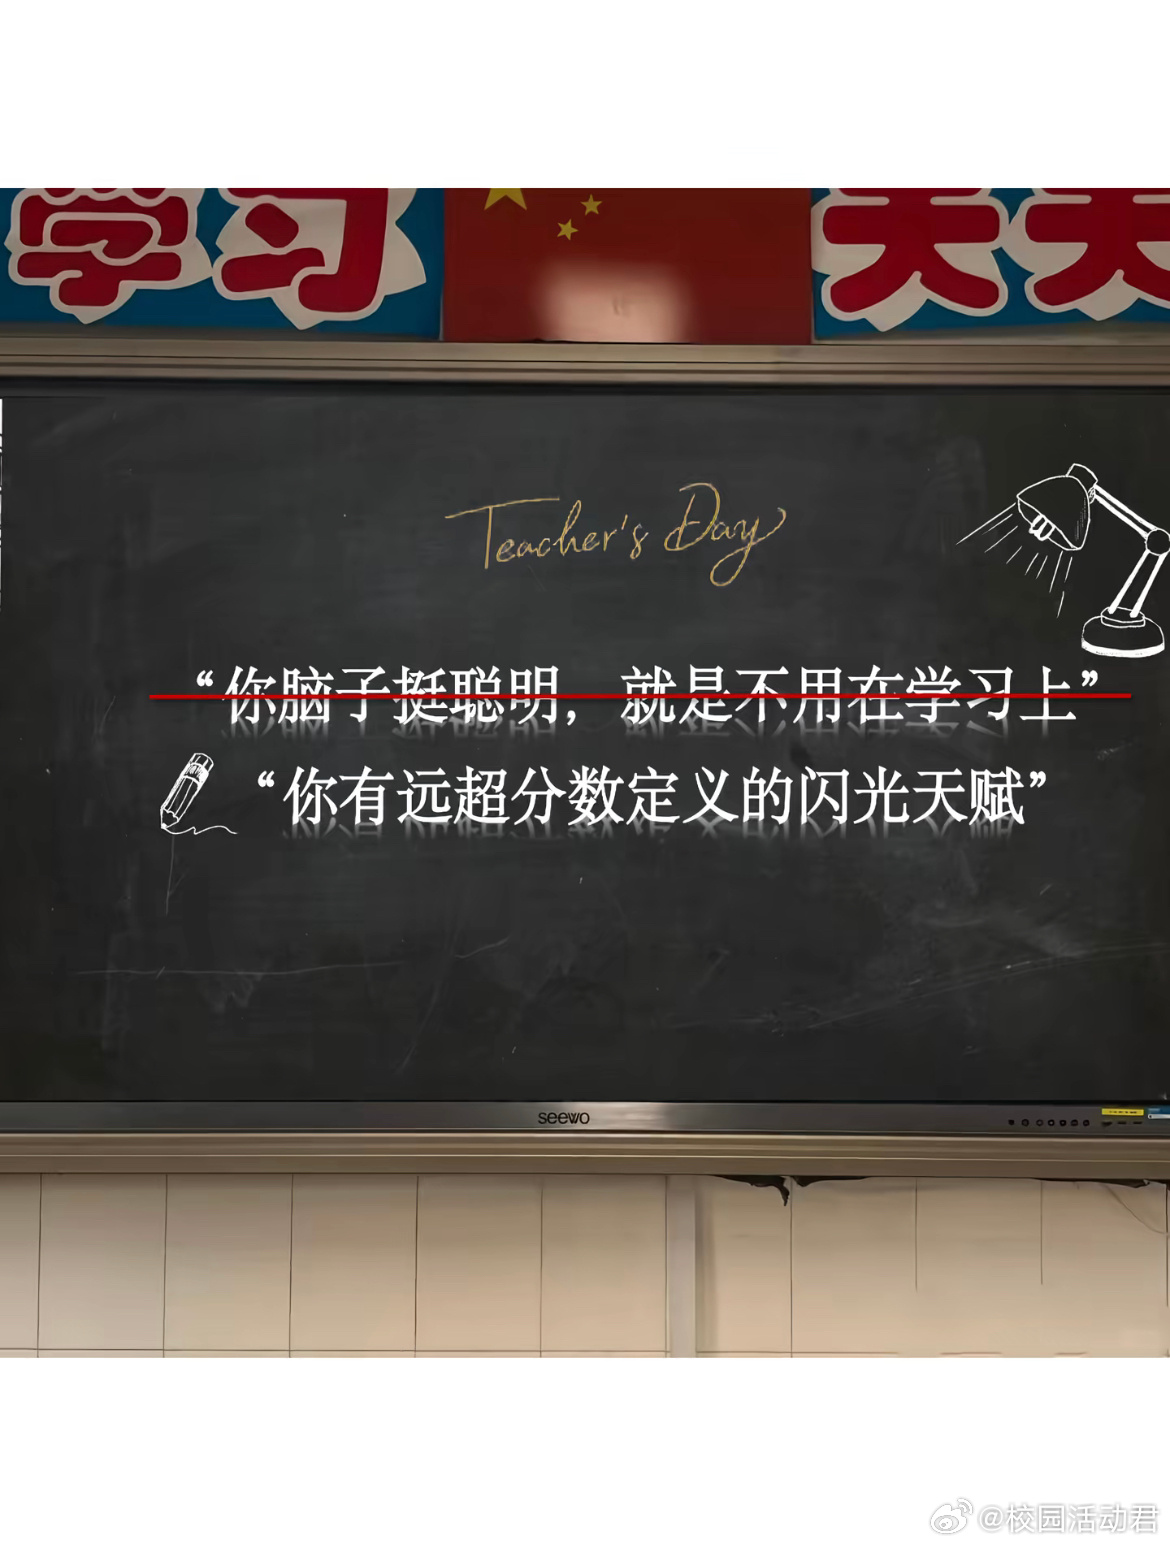 学习 天天
Teacher's Day
“你脑子挺聪明，就是不用在学习上”
“你有远超分数定义的闪光天赋”
seewo
@校园活动君